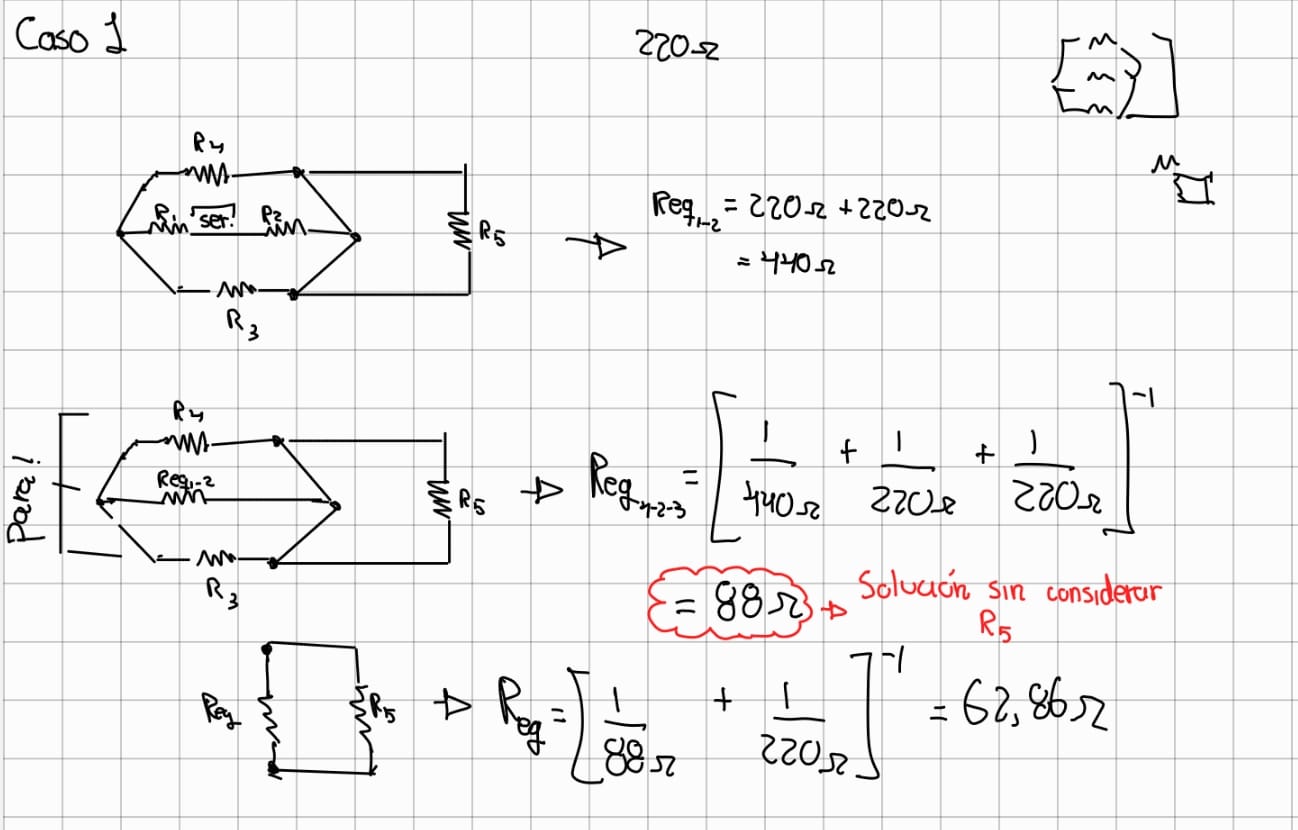 Caso 1
220Ω
R4
R1 ser! R2
R5
R3
Req1-2 = 220Ω + 220Ω
= 440Ω
Para!
R4
Req1-2
R5
R3
Req4-2-3 = [1/440Ω + 1/220Ω + 1/220Ω]^-1
= 88Ω → Solución sin considerar
R5
Req
R5
Req = [1/88Ω + 1/220Ω]^-1 = 62,86Ω